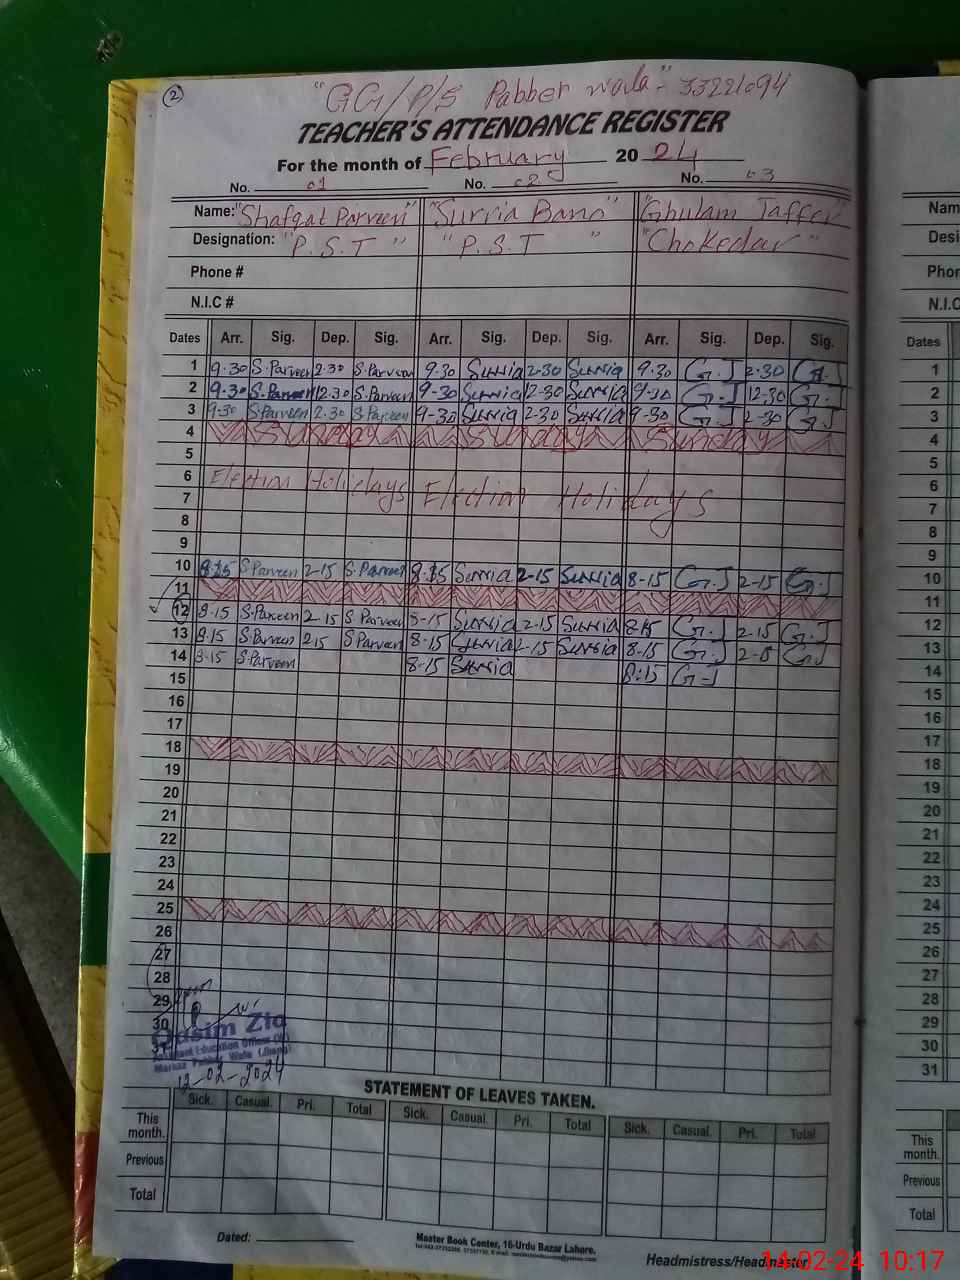 2
"GG/P/S Pabber wala"- 33221094
TEACHER'S ATTENDANCE REGISTER
For the month of February 2024
No. 01 No. 02 No. 03
Name: "Shafqat Parveen" "Surria Bano" "Ghulam Jaffer"
Designation: "P.S.T" "P.S.T" "Chokedar"
Phone #
N.I.C #
Dates Arr. Sig. Dep. Sig. Arr. Sig. Dep. Sig. Arr. Sig. Dep. Sig.
1 9.30 S.Parveen 2.30 S.Parveen 9.30 Surria 2-30 Surria 9.30 G.J 2.30 G.J
2 9.30 S.Parveen 12.30 S.Parveen 9-30 Surria 12-30 Surria 9-30 G.J 12-30 G.J
3 9-30 S.Parveen 2.30 S.Parveen 9-30 Surria 2-30 Surria 9-30 G.J 2-30 G.J
4 Sunday Sunday Sunday
5
6 Election Holidays Election Holidays
7
8
9
10 8-15 S.Parveen 2-15 S.Parveen 8-15 Surria 2-15 Surria 8-15 G.J 2-15 G.J
11
12 8-15 S.Parveen 2-15 S.Parveen 8-15 Surria 2-15 Surria 8-15 G.J 2-15 G.J
13 8-15 S.Parveen 2-15 S.Parveen 8-15 Surria 2-15 Surria 8-15 G.J 2-15 G.J
14 8-15 S.Parveen 8-15 Surria 8-15 G-J
15
16
17
18
19
20
21
22
23
24
25
26
27
28
29
30
31
Qasim Zia
Assistant Education Officer
Markaz Pabber Wala (Jhang)
12-02-2024
STATEMENT OF LEAVES TAKEN.
Sick. Casual. Pri. Total Sick. Casual. Pri. Total Sick. Casual. Pri. Total
This month.
Previous
Total
Dated:
Master Book Center, 16-Urdu Bazar Lahore.
Headmistress/Headmaster
Nam
Desi
Phor
N.I.C
Dates
1
2
3
4
5
6
7
8
9
10
11
12
13
14
15
16
17
18
19
20
21
22
23
24
25
26
27
28
29
30
31
This month.
Previous
Total
14-02-24 10:17